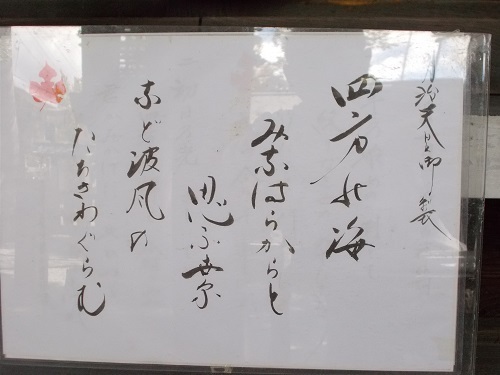 明治天皇御製
四方の海
みなはらからと
思ふ世に
など波風の
たちさわぐらむ